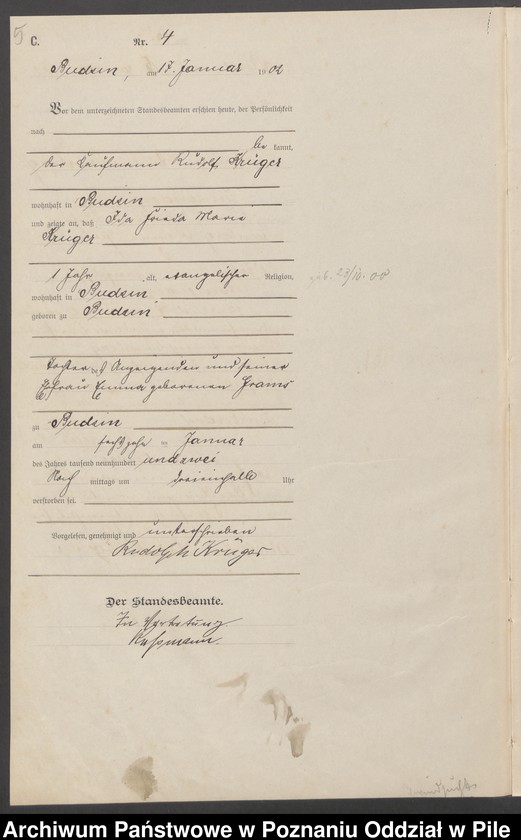 5
C. Nr. 4
Budsin, am 17. Januar 1902
Vor dem unterzeichneten Standesbeamten erschien heute, der Persönlichkeit
nach
be kannt,
der Kaufmann Rudolf Krüger
wohnhaft in Budsin
und zeigte an, daß Ida Frieda Marie
Krüger
1 Jahr alt, evangelischer Religion,
geb. 29/10. 00
wohnhaft in Budsin
geboren zu Budsin
Tochter des Anzeigenden und seiner
Ehefrau Emma geborenen Grams
zu Budsin
am sechszehn ten Januar
des Jahres tausend neunhundert und zwei
Nach mittags um dreieinhalb Uhr
verstorben sei.
Vorgelesen, genehmigt und unterschrieben
Rudolph Krüger
Der Standesbeamte.
In Vertretung
Archiwum Państwowe w Poznaniu Oddział w Pile